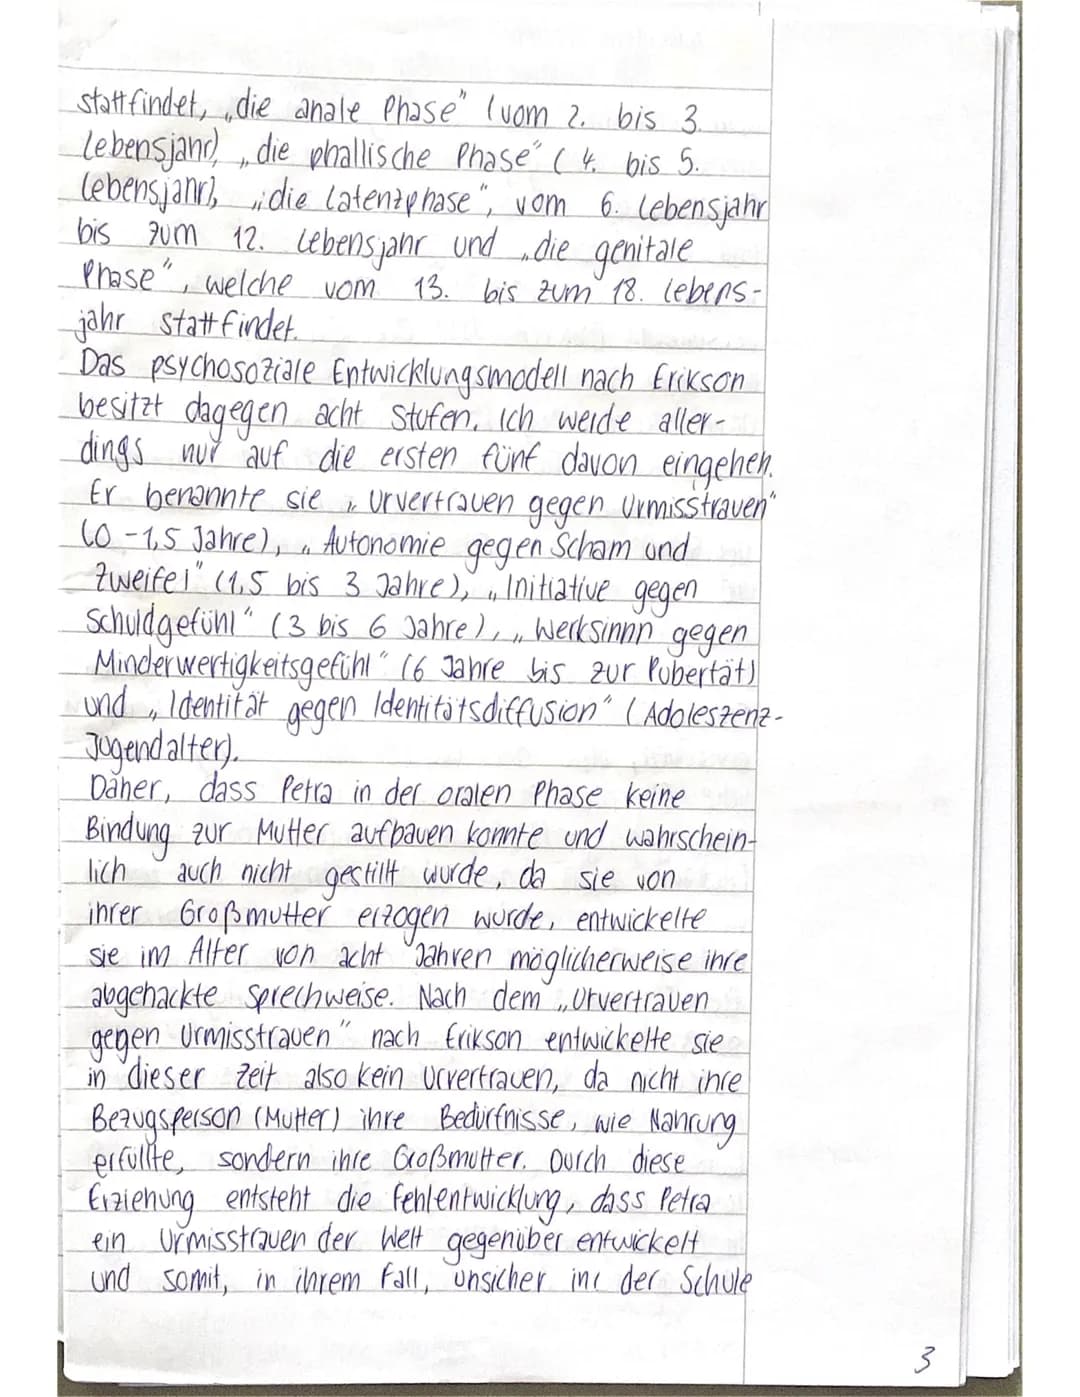 stattfindet, „die anale Phase" (vom 2. bis 3.
Lebensjahr), „die phallische Phase" (4. bis 5.
Lebensjahr), „die Latenzphase", vom 6. Lebensjahr
bis zum 12. Lebensjahr und „die genitale
Phase", welche vom 13. bis zum 18. Lebens-
jahr stattfindet.
Das psychosoziale Entwicklungsmodell nach Erikson
besitzt dagegen acht Stufen. Ich werde aller-
dings nur auf die ersten fünf davon eingehen.
Er benannte sie „Urvertrauen gegen Urmisstrauen"
(0-1,5 Jahre), „Autonomie gegen Scham und
Zweifel" (1,5 bis 3 Jahre), „Initiative gegen
Schuldgefühl" (3 bis 6 Jahre), „Werksinnn gegen
Minderwertigkeitsgefühl" (6 Jahre bis zur Pubertät)
und „Identität gegen Identitätsdiffusion" (Adoleszenz-
Jugendalter).
Daher, dass Petra in der oralen Phase keine
Bindung zur Mutter aufbauen konnte und wahrschein-
lich auch nicht gestillt wurde, da sie von
ihrer Großmutter erzogen wurde, entwickelte
sie im Alter von acht Jahren möglicherweise ihre
abgehackte Sprechweise. Nach dem „Urvertrauen
gegen Urmisstrauen" nach Erikson entwickelte sie
in dieser Zeit also kein Urvertrauen, da nicht ihre
Bezugsperson (Mutter) ihre Bedürfnisse, wie Nahrung
erfüllte, sondern ihre Großmutter. Durch diese
Erziehung entsteht die Fehlentwicklung, dass Petra
ein Urmisstrauen der Welt gegenüber entwickelt
und somit, in ihrem Fall, unsicher in der Schule
3